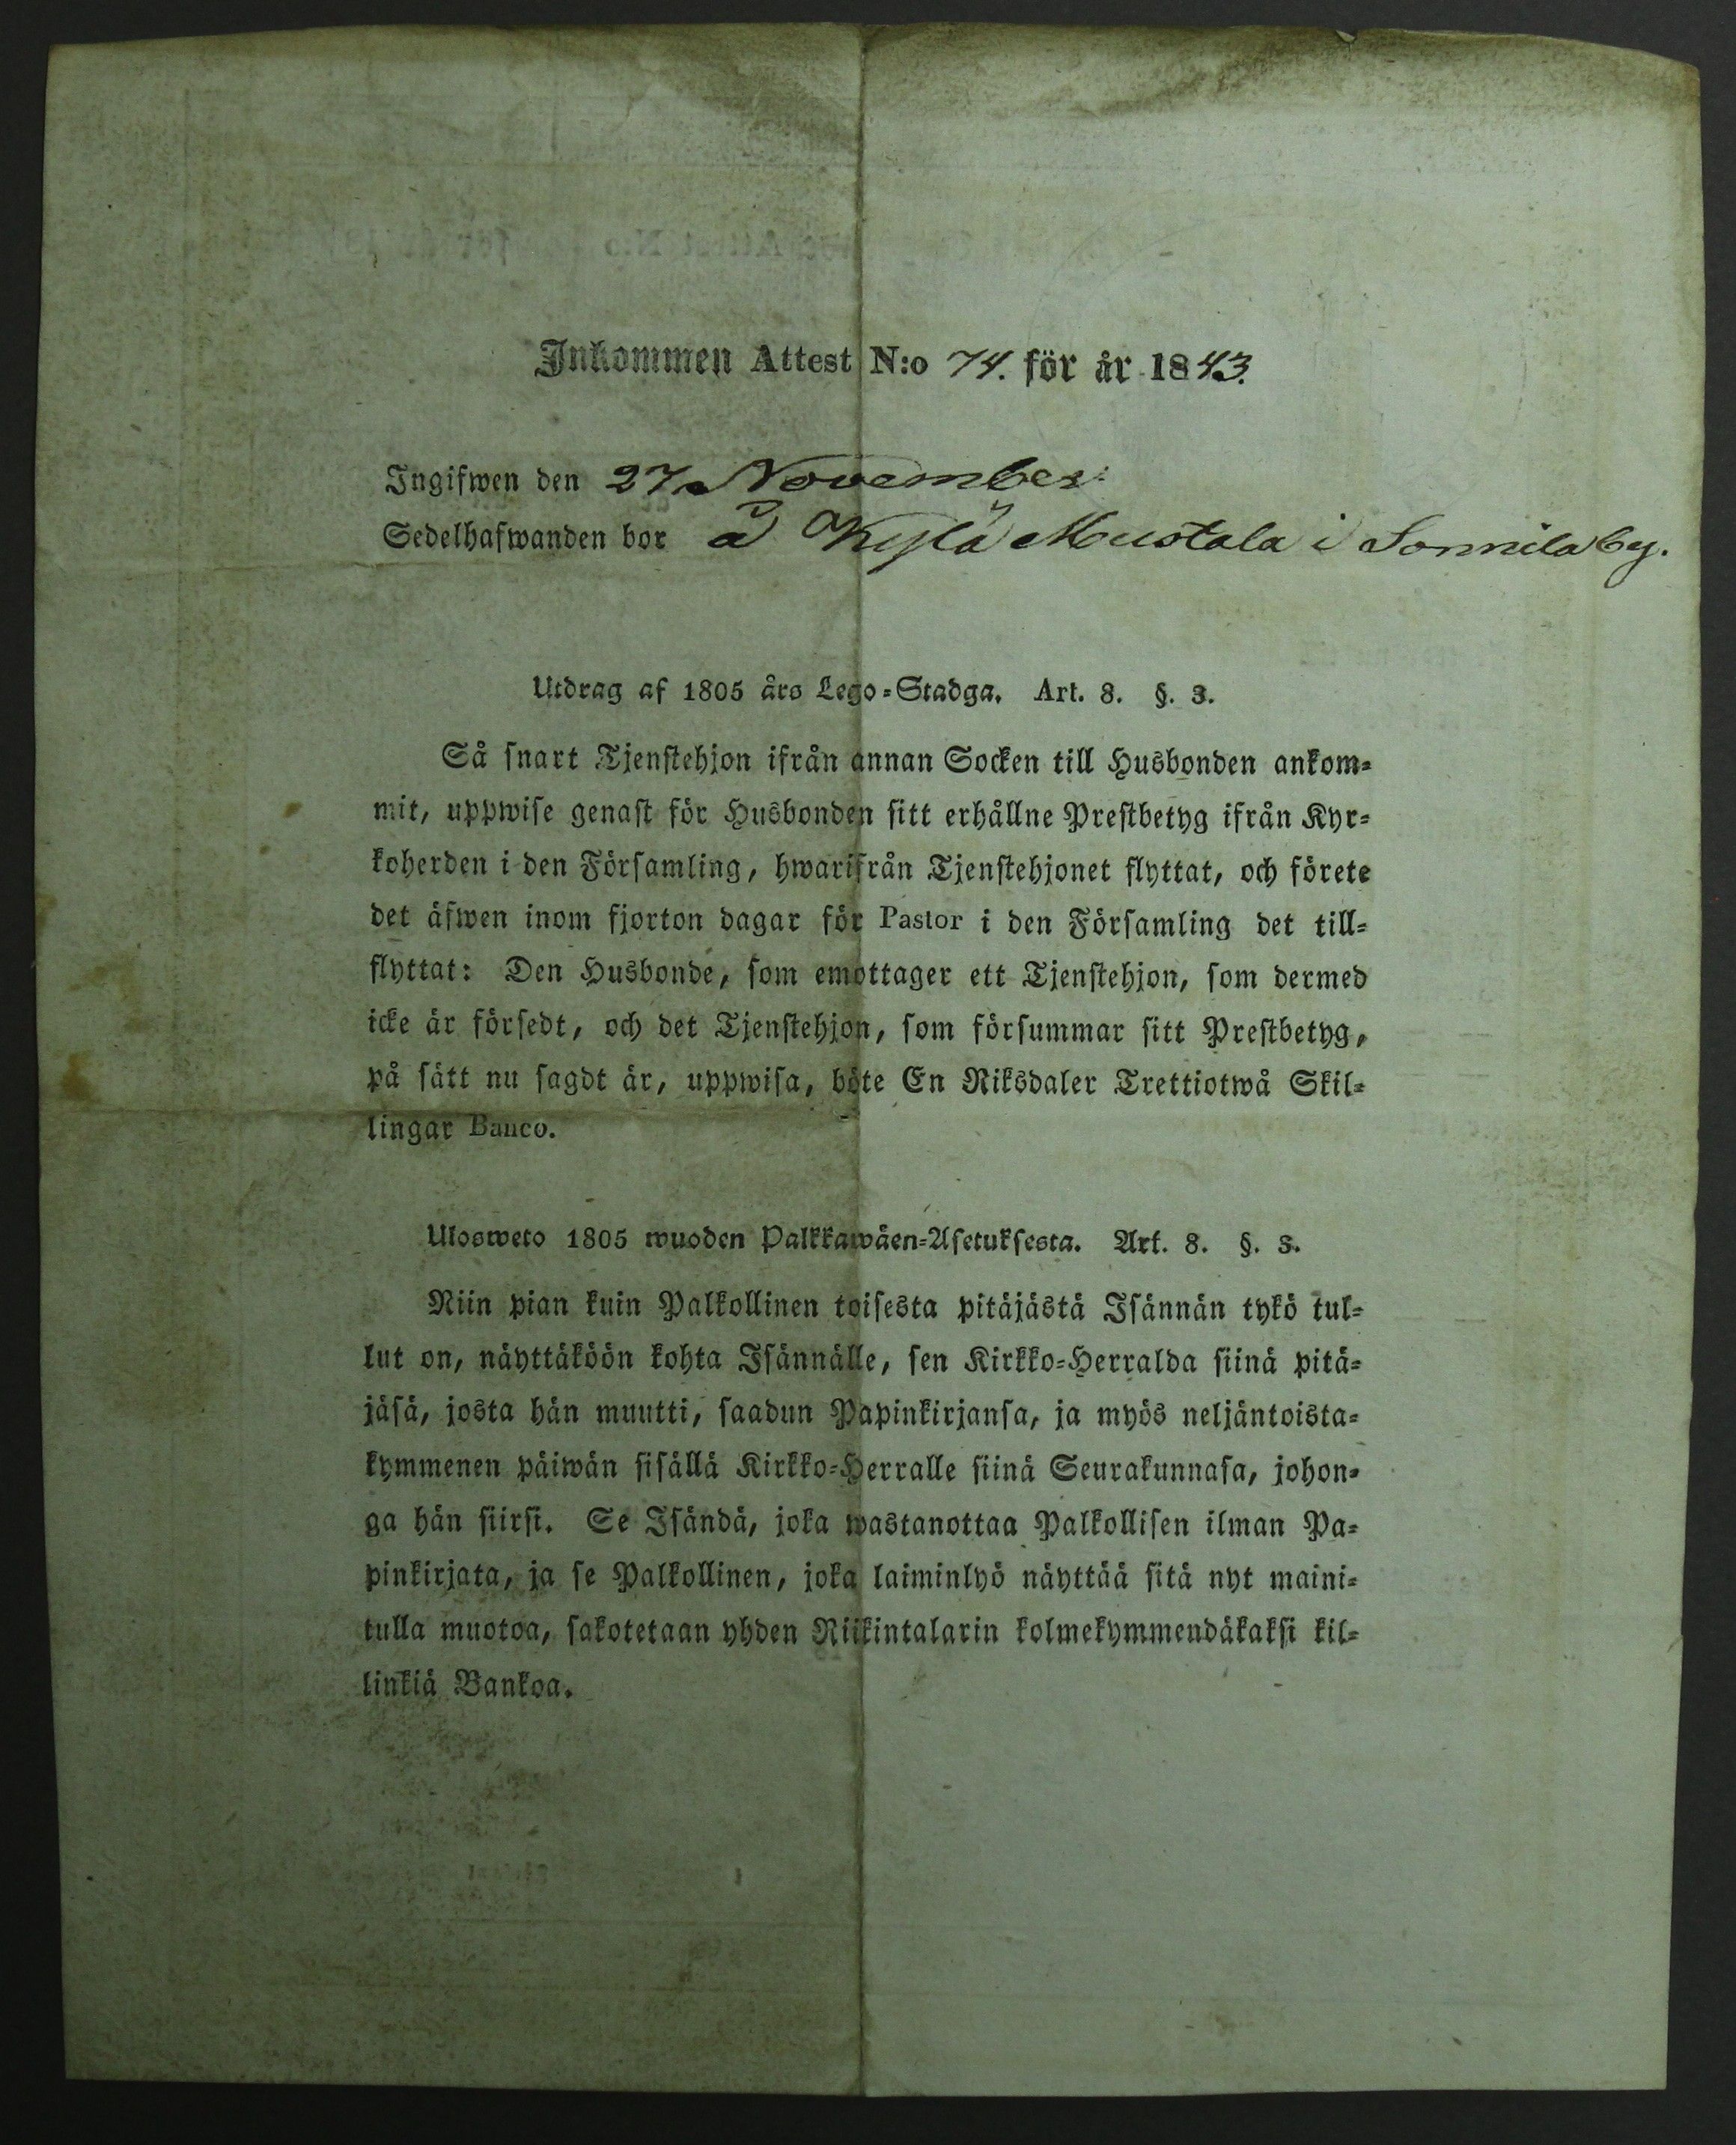 Inkommen Attest N:o 74. för år 1843.
Ingifwen den 27 November.
Sedelhafwanden bor å Kylä Mustala i Sonnila by.
Utdrag af 1805 års Lego-Stadga. Art. 8. §. 3.
Så snart Tjenstehjon ifrån annan Socken till Husbonden ankom-
mit, uppwise genast för Husbonden sitt erhållne Prestbetyg ifrån Kyr-
koherden i den Församling, hwarifrån Tjenstehjonet flyttat, och förete
det äfwen inom fjorton dagar för Pastor i den Församling det till-
flyttat: Den Husbonde, som emottager ett Tjenstehjon, som dermed
icke är försedt, och det Tjenstehjon, som försummar sitt Prestbetyg,
på sätt nu sagdt är, uppwisa, böte En Riksdaler Trettiotwå Skil-
lingar Banco.
Ulosweto 1805 wuoden Palkkawäen-Asetuksesta. Art. 8. §. 3.
Niin pian kuin Palkollinen toisesta pitäjästä Isännän tykö tul-
lut on, näyttäköön kohta Isännälle, sen Kirkko-Herralda siinä pitä-
jäsä, josta hän muutti, saadun Papinkirjansa, ja myös neljäntoista-
kymmenen päiwän sisällä Kirkko-Herralle siinä Seurakunnasa, johon-
ga hän siirsi. Se Isändä, joka wastanottaa Palkollisen ilman Pa-
pinkirjata, ja se Palkollinen, joka laiminlyö näyttää sitä nyt maini-
tulla muotoa, sakotetaan yhden Riikintalarin kolmekymmendäkaksi kil-
linkiä Bankoa.